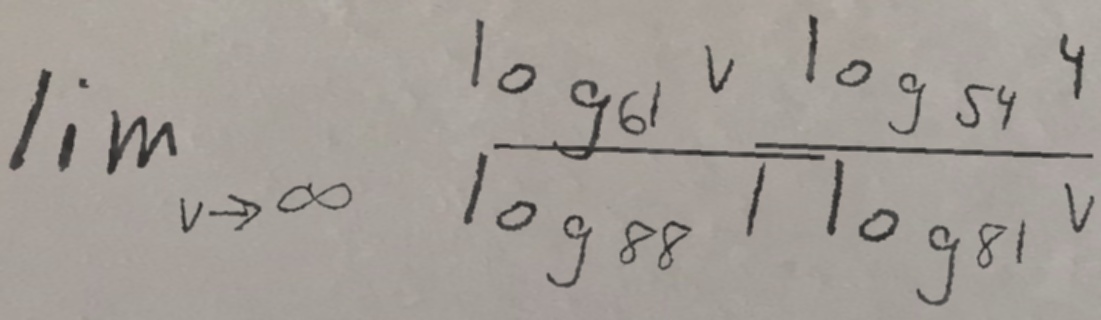 \lim_{v \to \infty} \frac{\log_{61} v \log_{54} 4}{\log_{88} 1 \log_{81} v}